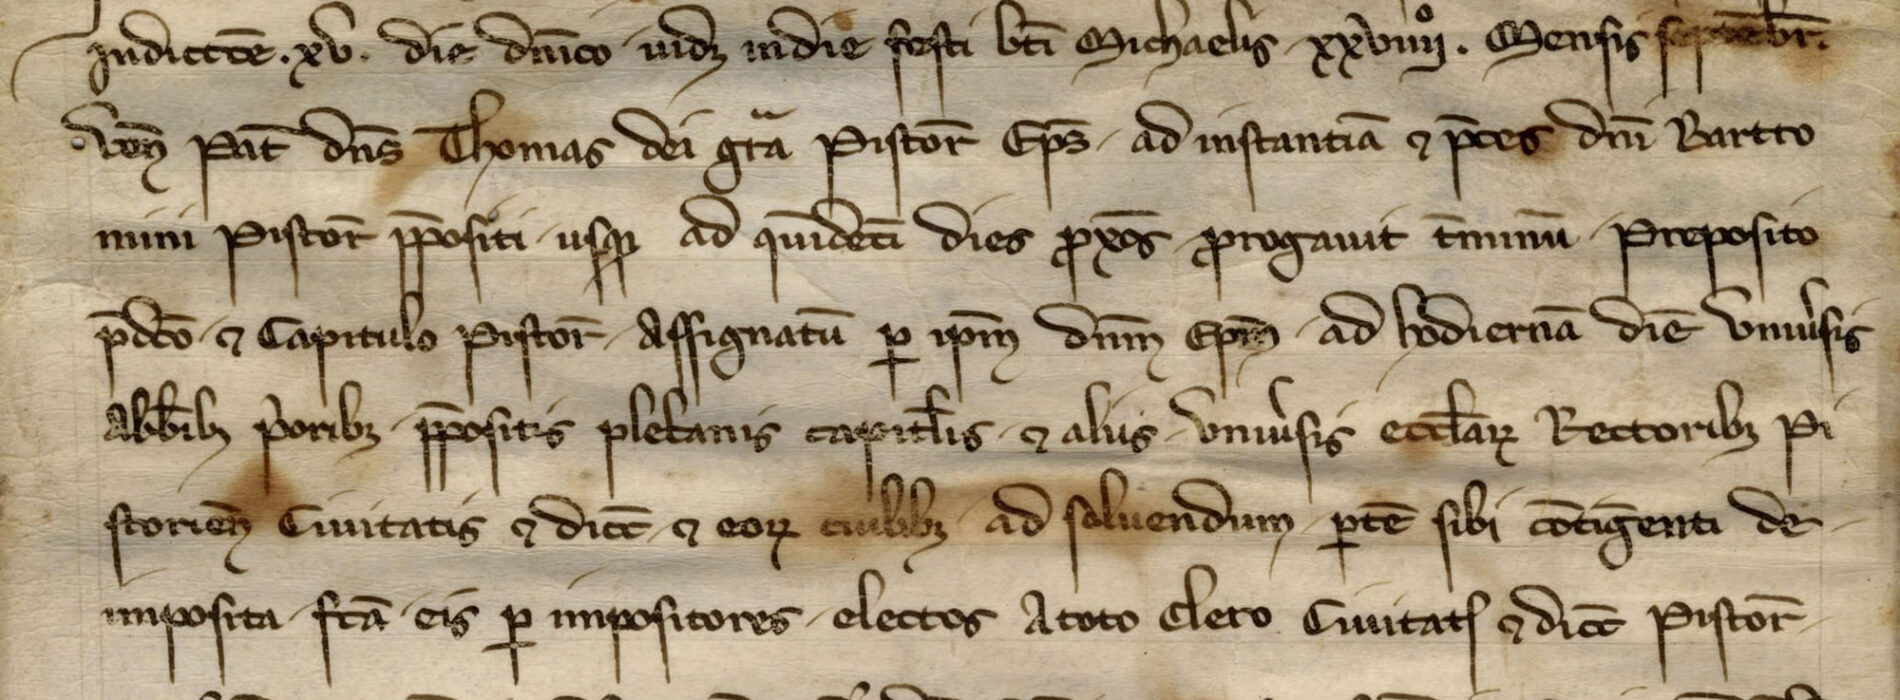 Indictōe . xv . die dn̄ico vidȝ in die festi bt̄i Michaelis xxviiij°. Mensis septēbr̄.
Ven̄ Pat̄ dn̄s Thomas dei gr̄a Pistor̄ Ep̄s ad instantiā ⁊ p̄ces dn̄i Bartro
mini Pistor̄ p̄positi usqꝫ ad qⁱndeci dies ꝓxōs ꝓrogavit t̄minū Preposito
p̄dc̄o ⁊ Capitulo Pistor̄ Assignatū ꝑ ip̄m dn̄m Ep̄m ad hodiernā diē Univ̓sis
Abb̄ibꝫ p̓oribꝫ p̄positis plebanis capitl̄is ⁊ aliis Univ̓sis eccl̄aꝝ Rectoribꝫ Pi
storien̄ Civitatis ⁊ dioc̄ ⁊ eoꝝ ad solvendum ꝑtē sibi cōtigēnti de
imposita fc̄ā eis ꝑ impositores electos A toto Clero Civitatꝭ ⁊ dioc̄ Pistor̄